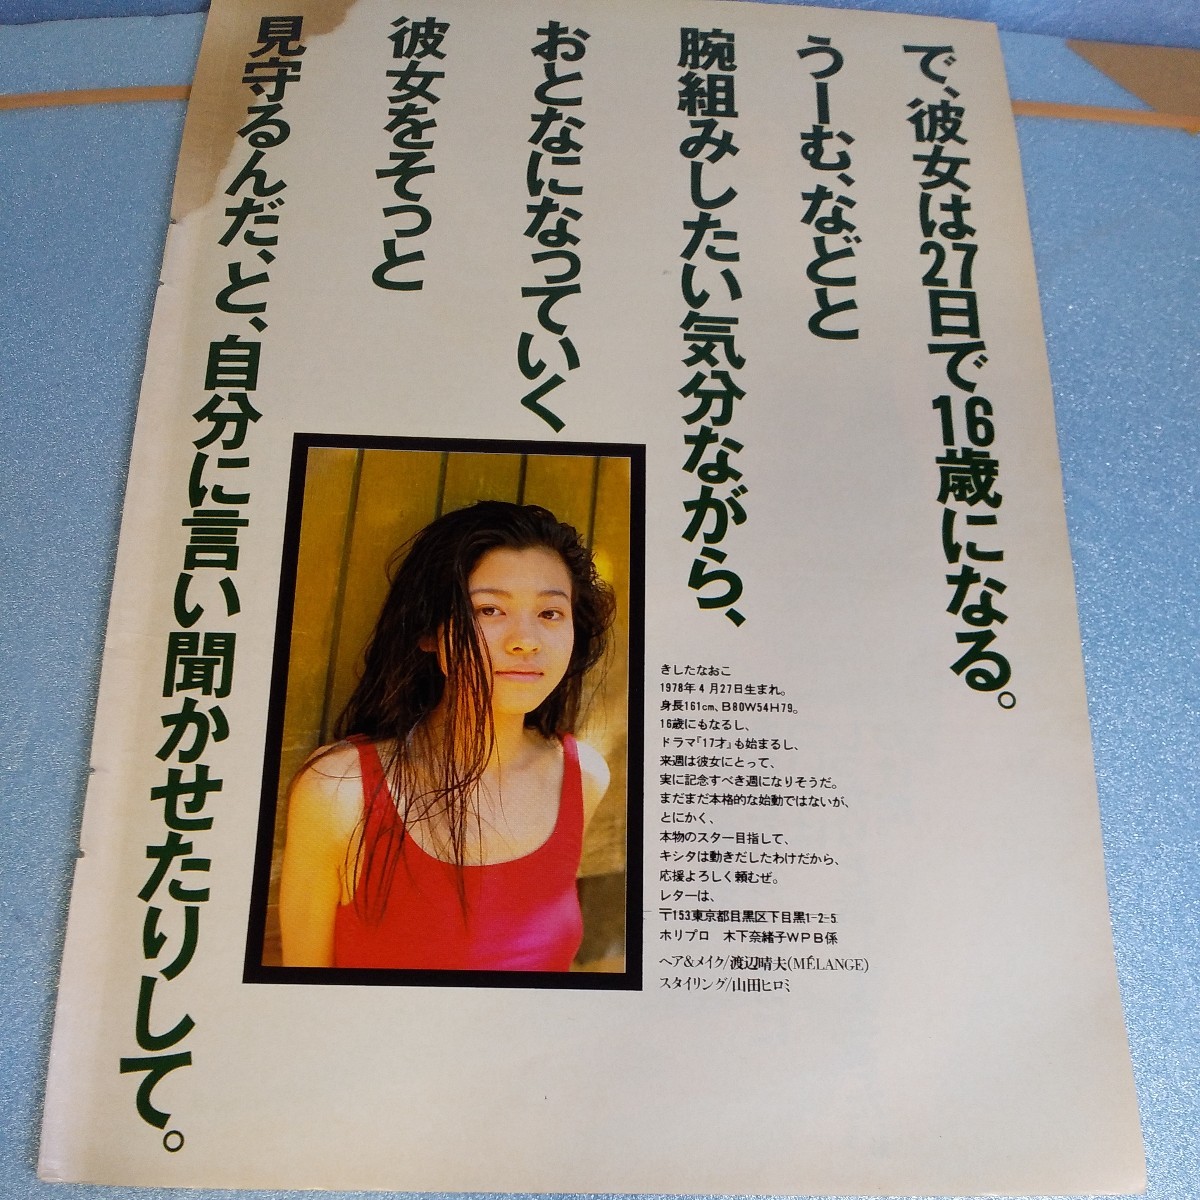 で、彼女は27日で16歳になる。
うーむ、などと
腕組みしたい気分ながら、
おとなになっていく
彼女をそっと
見守るんだ、と、自分に言い聞かせたりして。
きしたなおこ
1978年4月27日生まれ。
身長161cm、B80W54H79。
16歳にもなるし、
ドラマ「17才」も始まるし、
来週は彼女にとって、
実に記念すべき週になりそうだ。
まだまだ本格的な始動ではないが、
とにかく、
本物のスター目指して、
キシタは動きだしたわけだから、
応援よろしく頼むぜ。
レターは、
〒153東京都目黒区下目黒1-2-5
ホリプロ　木下奈緒子WPB係
ヘア&メイク/渡辺晴夫(MÉLANGE)
スタイリング/山田ヒロミ